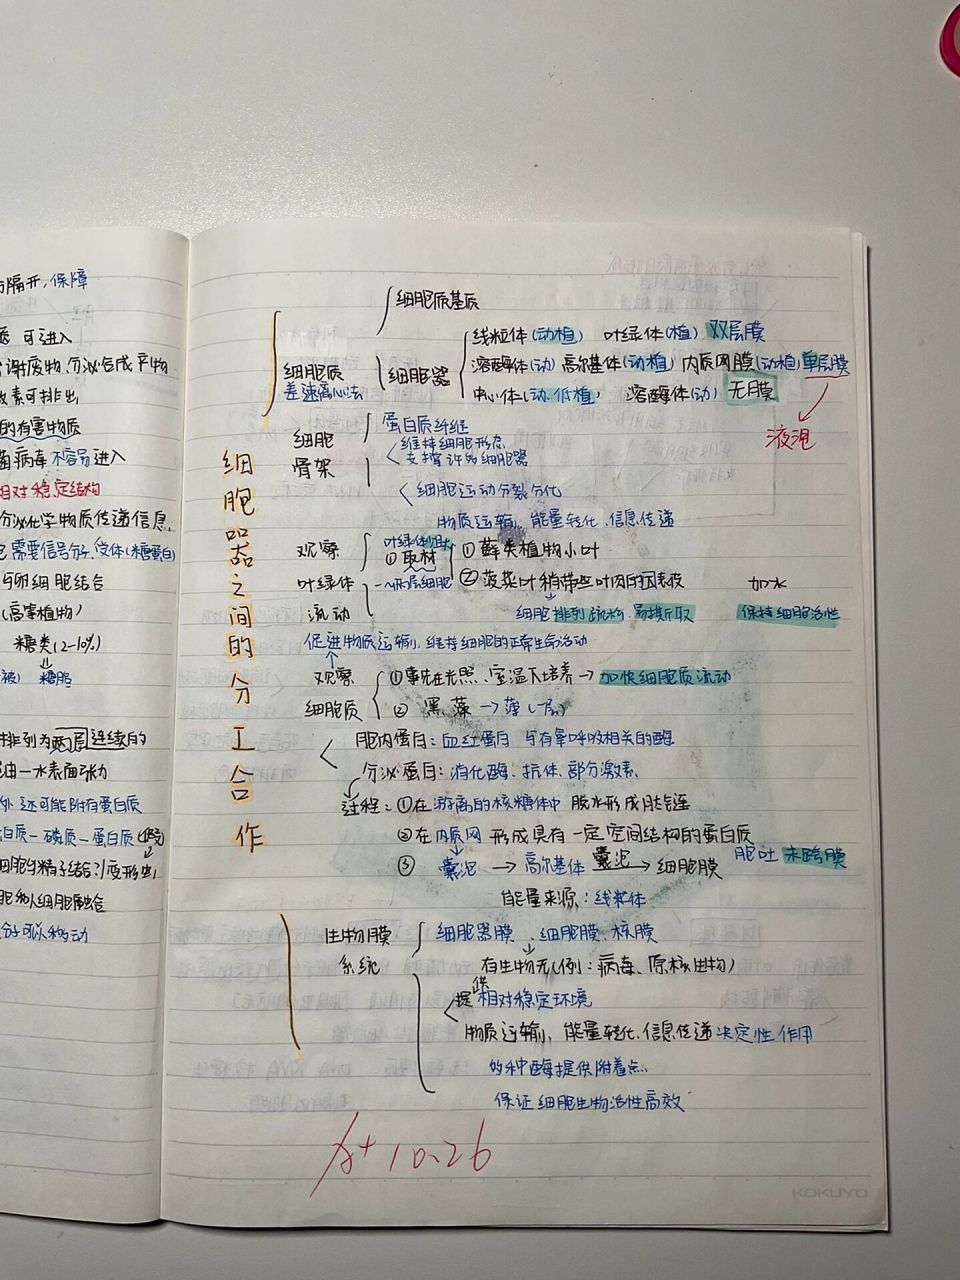 隔开,保障
可进入
谢废物、分泌合成产物
素可排出
的有害物质
菌病毒不容易进入
相对稳定结构
分泌化学物质传递信息
需要信号分子、受体(糖蛋白)
与卵细胞结合
(高等植物)
糖类(2-10%)
被) 糖脂
排列为两层连续的
由一水表面张力
外 还可能附有蛋白质
白质-磷质-蛋白质
细胞与精子结合
胞和人细胞融合
分子可以移动
细胞器之间的分工合作
细胞质基质
细胞质
差速离心法
细胞器
线粒体(动植) 叶绿体(植) 双层膜
溶酶体(动) 高尔基体(动植) 内质网膜(动植) 单层膜
中心体(动、低植) 溶酶体(动) 无膜
液泡
细胞
骨架
蛋白质纤维
维持细胞形态
支撑许多细胞器
细胞运动分裂分化
物质运输、能量转化、信息传递
观察
叶绿体
流动
①取材
①藓类植物小叶
②菠菜叶稍带些叶肉的下表皮
一两层细胞
加水
细胞排列疏松、易撕取 保持细胞活性
促进物质运输、维持细胞的正常生命活动
观察
细胞质
①事先在光照、室温下培养→加快细胞质流动
② 黑藻→薄(一层)
胞内蛋白:血红蛋白 与有氧呼吸相关的酶
分泌蛋白:消化酶、抗体、部分激素
过程:①在游离的核糖体中 脱水形成肽链
②在内质网 形成具有一定空间结构的蛋白质
③ 囊泡→高尔基体 囊泡→细胞膜 胞吐 未跨膜
能量来源:线粒体
生物膜
系统
细胞器膜、细胞膜、核膜
有生物无(例:病毒、原核生物)
提供相对稳定环境
物质运输、能量转化、信息传递决定性作用
的种酶提供附着点
保证细胞生物活性高效
A+ 10.26
KOKUYO